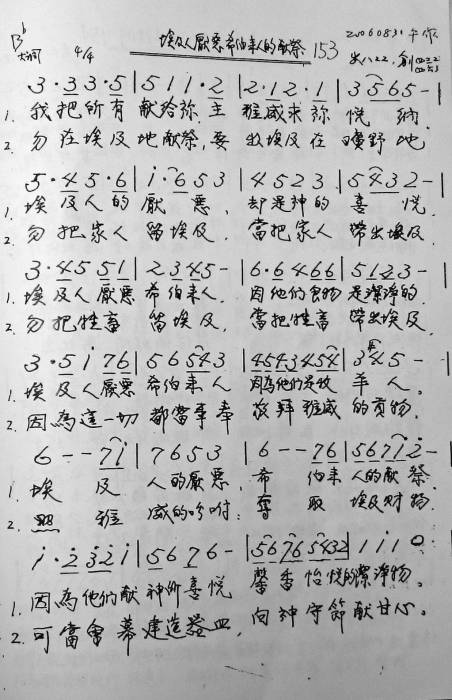 B♭ 大調 4/4 埃及人厭惡希伯來人的獻祭 153 20060831 午作
出八22, 創
3·33·5|511·2|2·12·1|3565-|
1. 我把所有獻給祢,主雅威來祢悅納.
2. 勿在埃及地獻祭,要出埃及在曠野地
5·45·6|i·653|4523|5432-|
1. 埃及人的厭惡, 却是神的喜悅.
2. 勿把家人留埃及, 當把家人帶出埃及
3·4551|2345-|6·6466|5123-|
1. 埃及人厭惡希伯來人, 因他們食物是潔淨的.
2. 勿把牲畜留埃及, 當把牲畜帶出埃及
3·5i76|56543|4543454|345-|
1. 埃及人厭惡希伯來人因為他們是牧羊人。
2. 因為這一切都當事奉敬拜雅威的貢物.
6--7i|7653|6--76|567i2-|
1. 埃及人的厭惡希伯來人的獻祭.
2. 照雅威的吩咐:奪取埃及財物.
i·232i|5676-|56765432|iii0
1. 因為他們獻神所喜悅馨香怡悅的潔淨物。
2. 可當會幕建造器皿, 向神守節獻甘心。